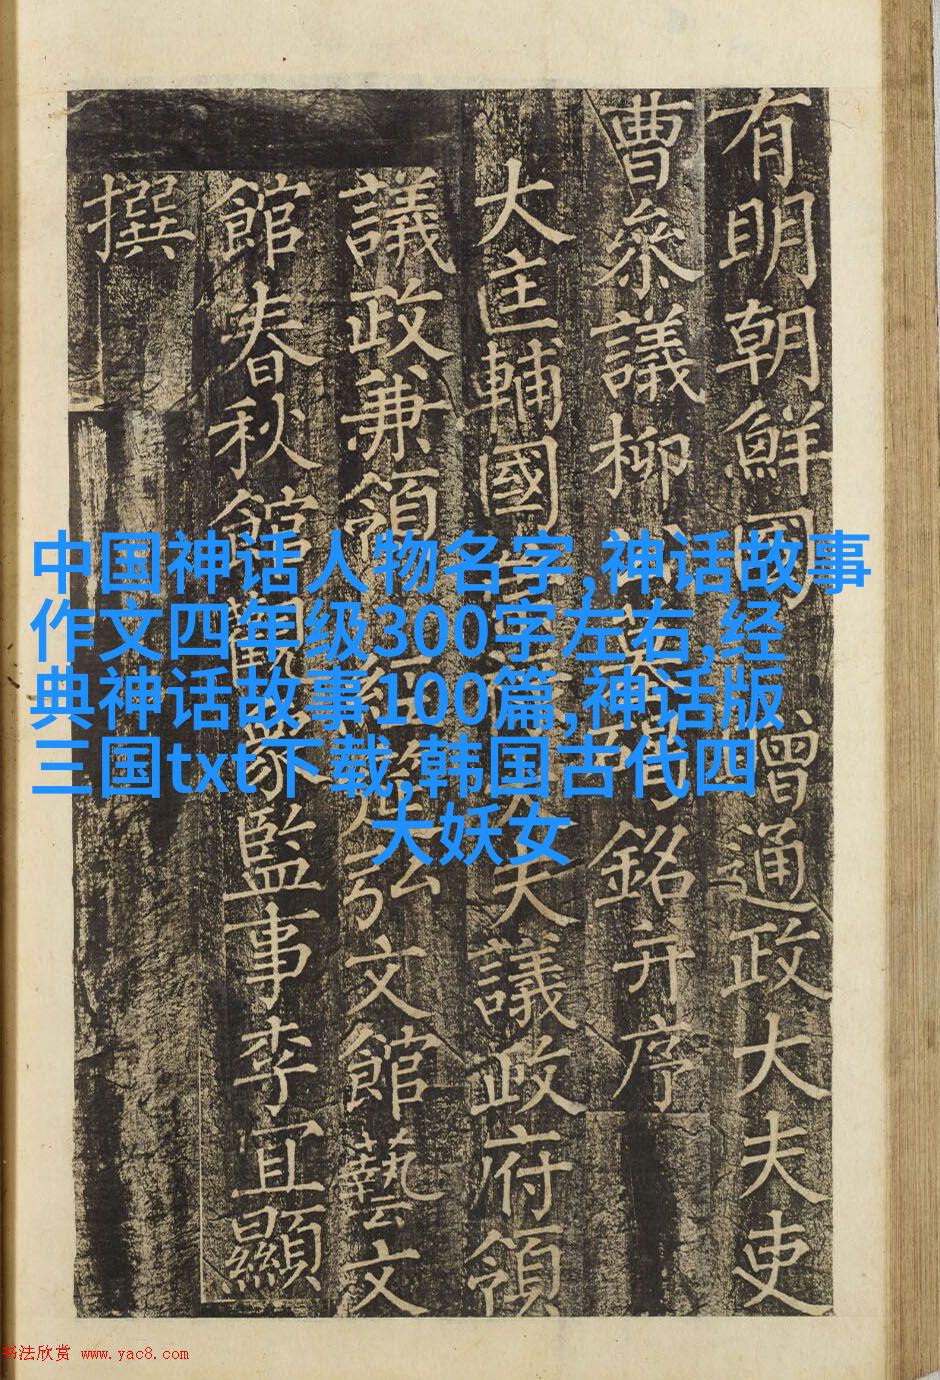 有明朝鮮國贈通政大夫吏
曹參議柳墓碣銘并序
大匡輔國夫議政府領
議政兼領經筵弘文館藝文
館春秋館觀象監事李宜顯
撰
中国神话人物名字,神话故事
作文四年级300字左右,经
典神话故事100篇,神话版
三国txt下载,韩国古代四
大妖女
书法欣赏 www.yac8.com